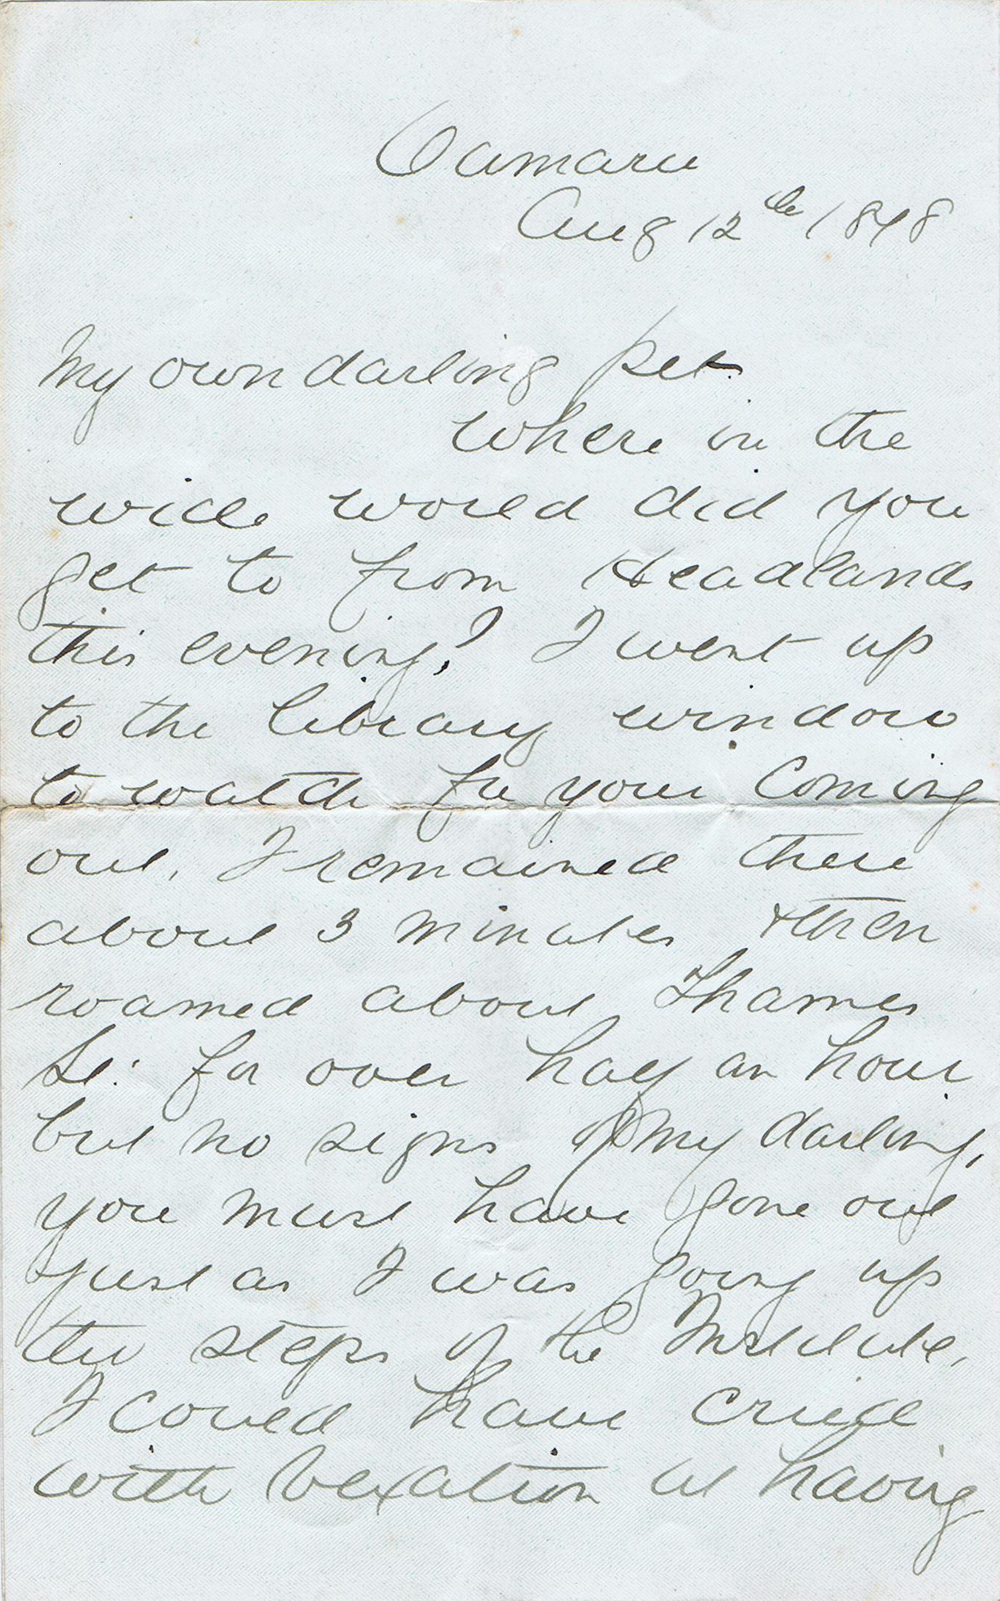 Oamaru
Aug 12th 1898
My own darling Pet.
Where in the
wide world did you
get to from Headlands
this evening? I went up
to the library window
to watch for your coming
out. I remained there
about 3 minutes & then
roamed about Thames
St: for over half an hour
but no signs of my darling,
you must have gone out
just as I was going up
the steps of the Institute,
I could have cried
with vexation at having